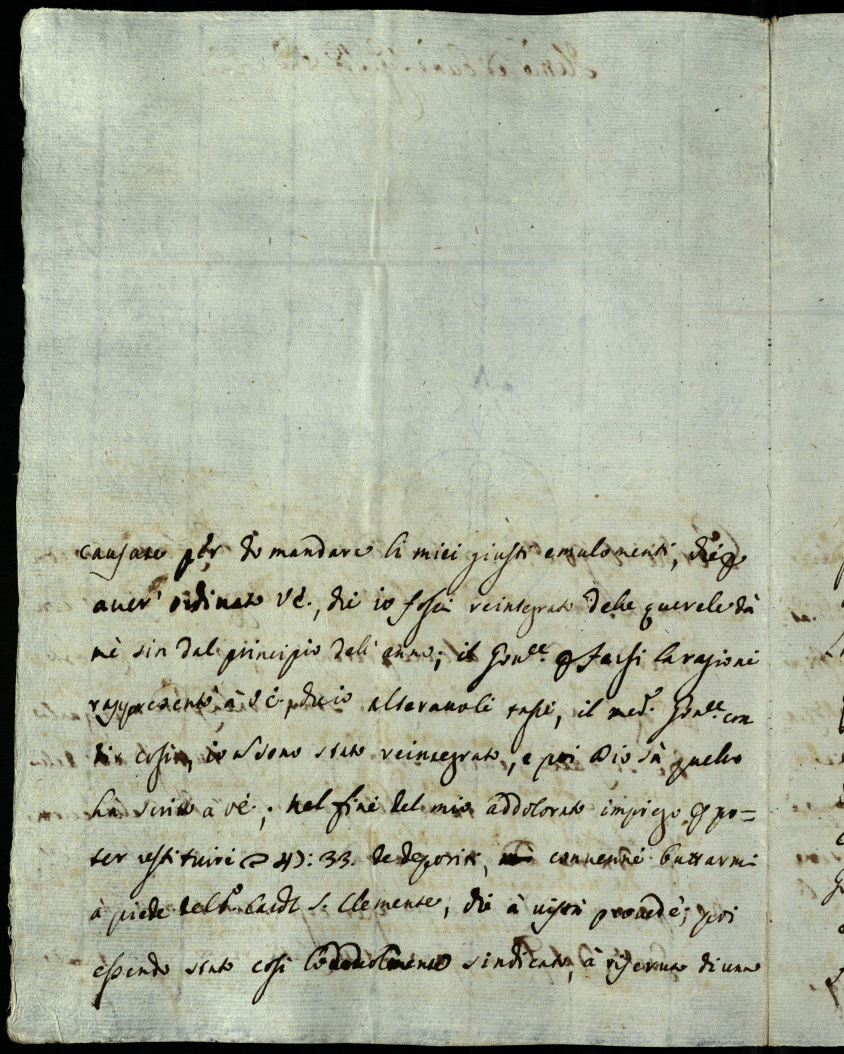 causato per domandare li miei giusti emulomenti, che p
auer' ordinato V.E., che io fossi reintegrato delle querele dà
mè sin dal principio dell'anno; il Gov.re p farsi la ragione
rappresentò à V.E., che io alterauoli tasse, il med.o Gov.re con
dir cosi, io sono stato reintegrato, e poi Dio sà quello
hà scritto à V.E.; nel fine del mio addolorato impiego p po=
ter restituire 47: 33. de depositi, conuenne buttarmi
à piede del S.r Card. S. Clemente, che à uista prouedè; poi
essendo stato cosi sindicato, à riserua di uno